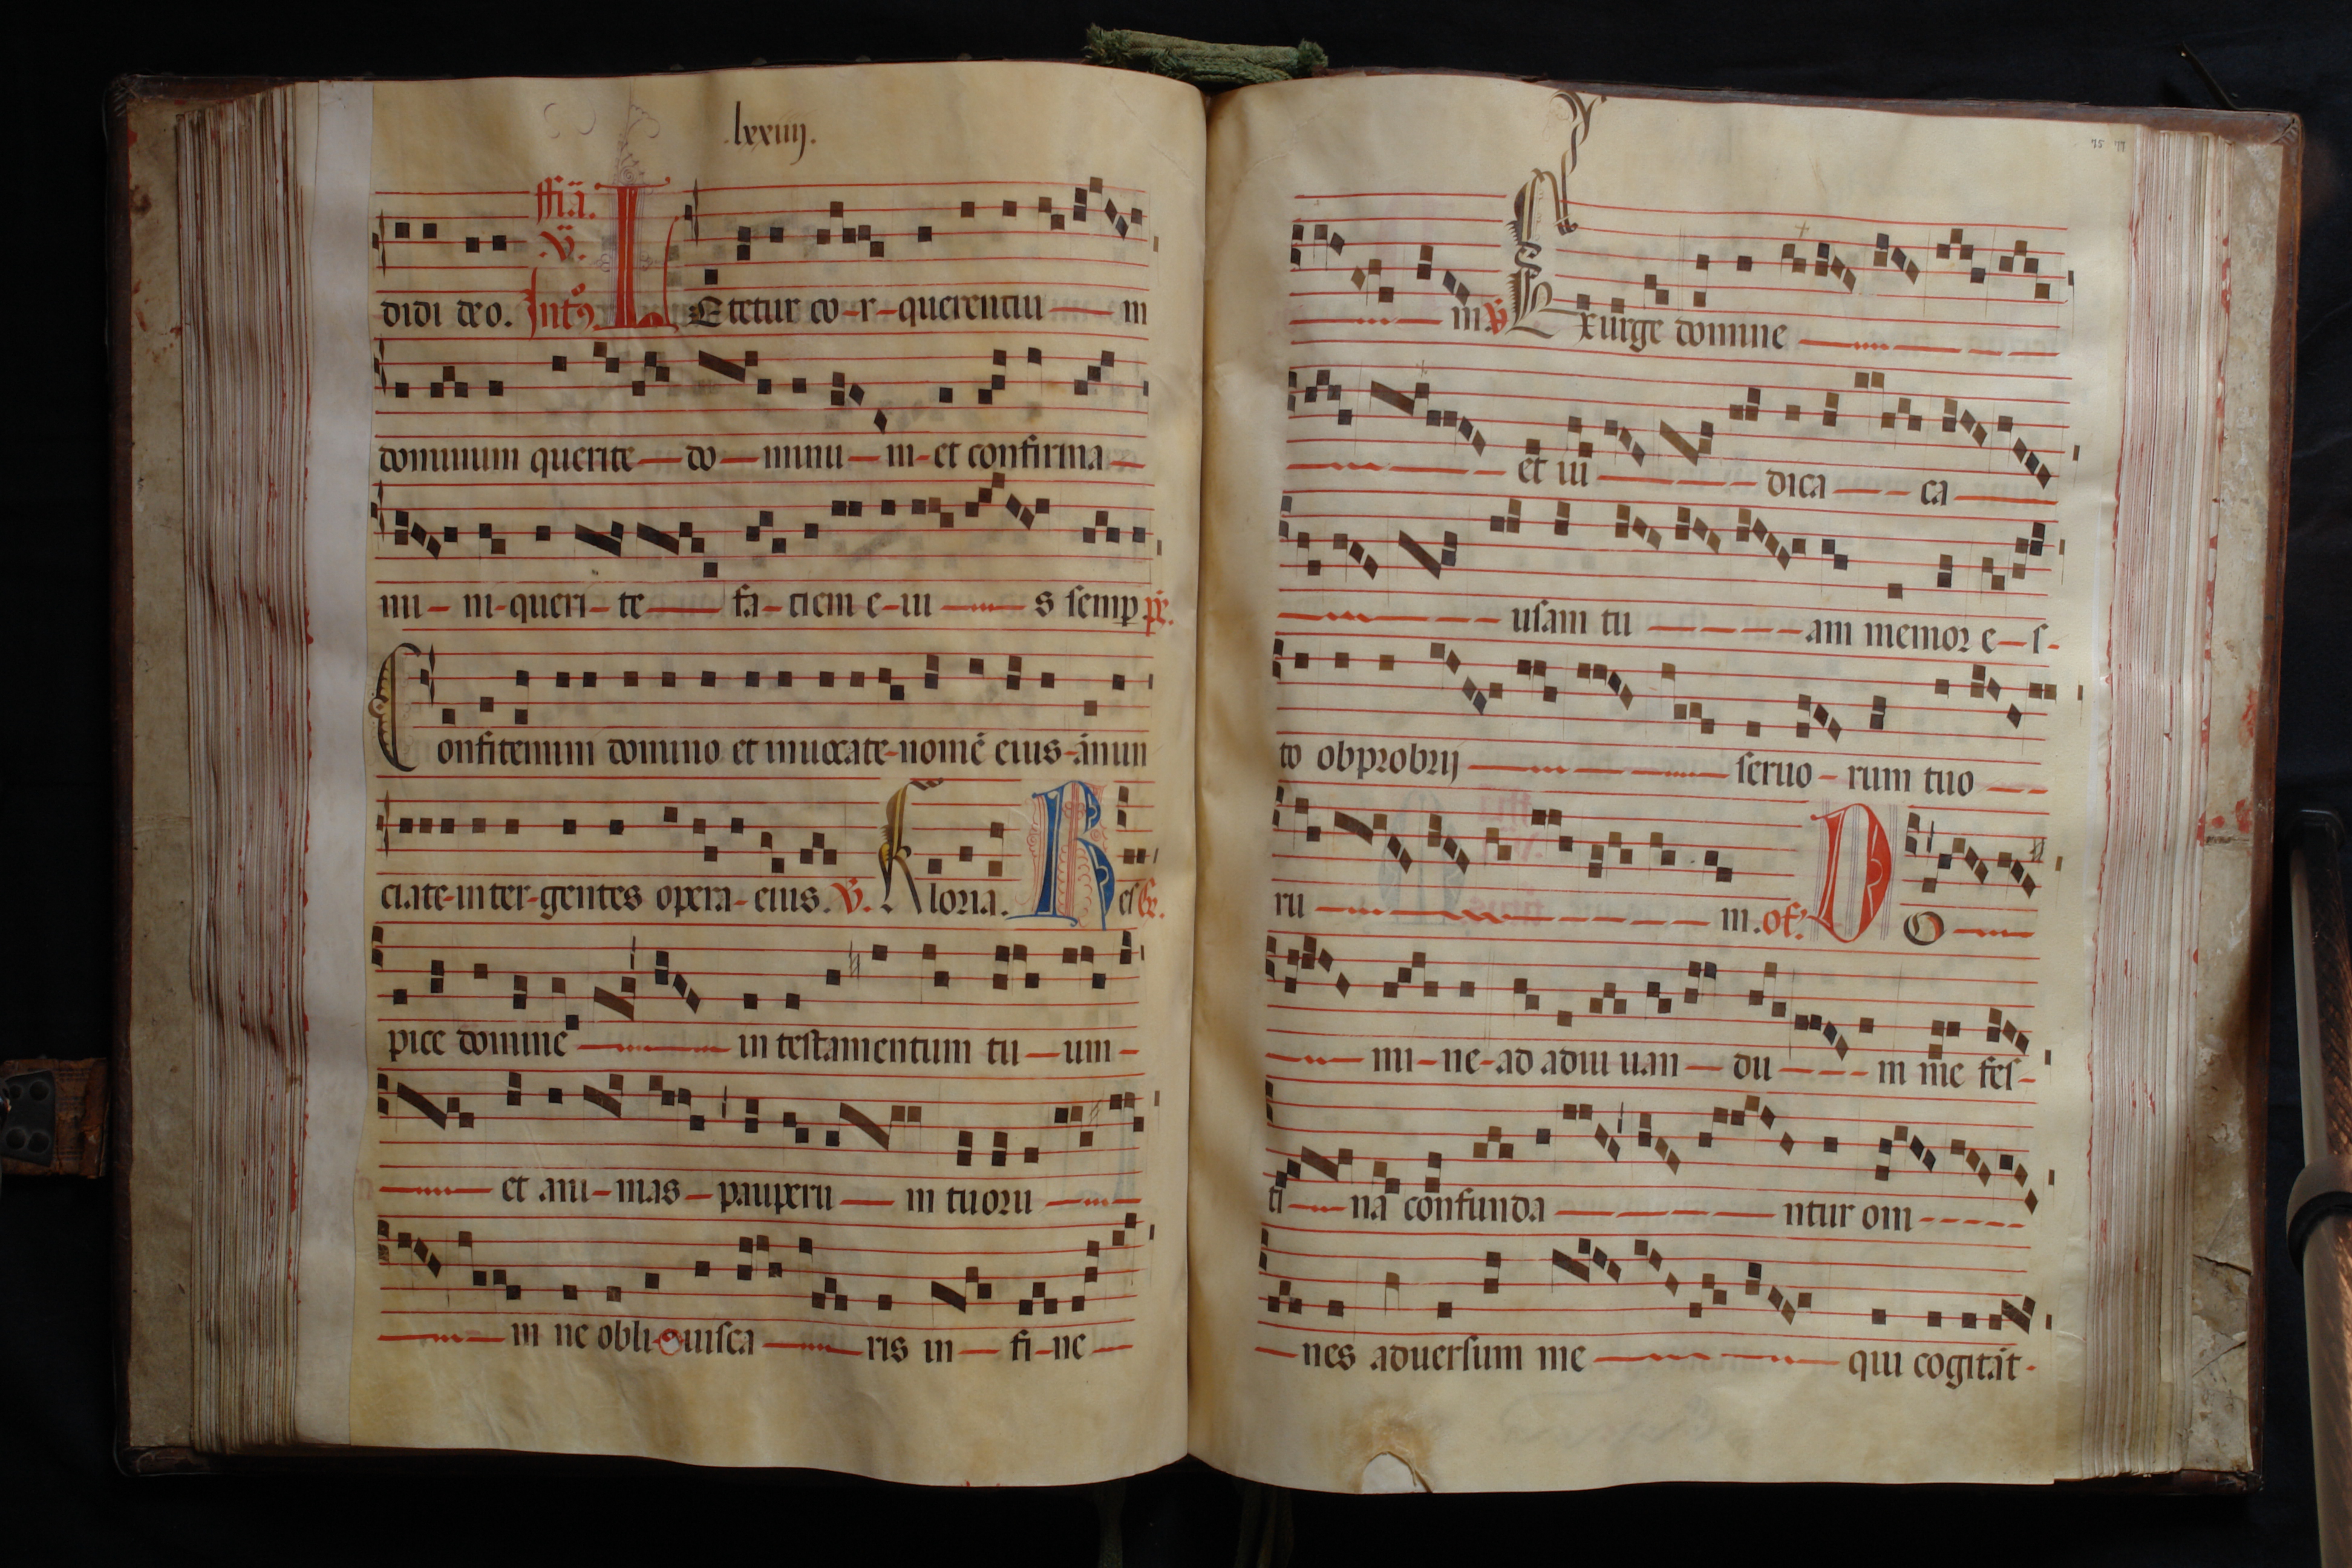 .lxxiiij.
ffiã.
.v̈.
didi deo. Intꝰ L Etetur co-r-querentiu — m
dominum querite — do — minu — m-et confirma —
mi — ni-queri-te — fa-ciem e-iu — s semp ps̄.
Confitemini domino et inuocate-nomē eius-ānun
ciate-inter-gentes opera-eius. v̈. Gloria. Res Gr.
pice domine — in testamentum tu — um —
— et ani-mas — pauperu — m tuoru —
— m ne obli-uisca — ris in — fi-ne —
75 77
— m v̈ Exurge domine —
— et iu — dica — ca —
— usam tu — am memor e—s-
to obprobrij — seruo — rum tuo —
ru — m. of. D O —
— mi-ne-ad adiu uan — du — m me fes-
ti — na confunda — ntur om -----
— nes aduersum me — qui cogitāt-